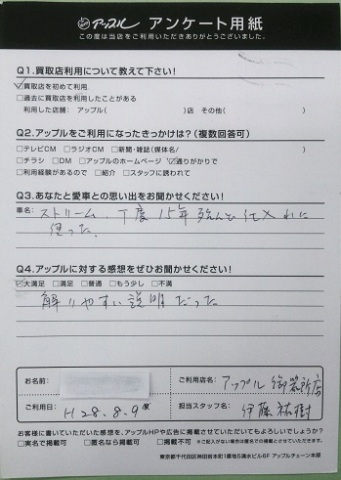 アップル アンケート用紙
この度は当店をご利用いただきありがとうございました。
Q1.買取店利用について教えて下さい!
☑買取店を初めて利用
□過去に買取店を利用したことがある
利用した店舗: アップル( )店 その他( )
Q2.アップルをご利用になったきっかけは?(複数回答可)
□テレビCM □ラジオCM □新聞・雑誌(媒体名/ )
□チラシ □DM □アップルのホームページ ☑通りがかりで
□利用経験があるので □紹介 □スタッフに誘われて
Q3.あなたと愛車との思い出をお聞かせください!
車名: ストリーム、丁度15年殆んど仕入れに
使った。
Q4.アップルに対する感想をぜひお聞かせください!
☑大満足 □満足 □普通 □もう少し □不満
解りやすい説明だった
お名前:
ご利用店名: アップル御器所店
ご利用日: H28.8.9
担当スタッフ名: 伊藤祐樹
お客様に書いていただいた感想を、アップルHPや広告に掲載させていただいてもよろしいでしょうか?
□実名で掲載可 □匿名なら掲載可 □掲載不可 ※ご記入がない場合は匿名での掲載とさせていただきます。
東京都千代田区神田錦本町1番地5清水ビル6F アップルチェーン本部